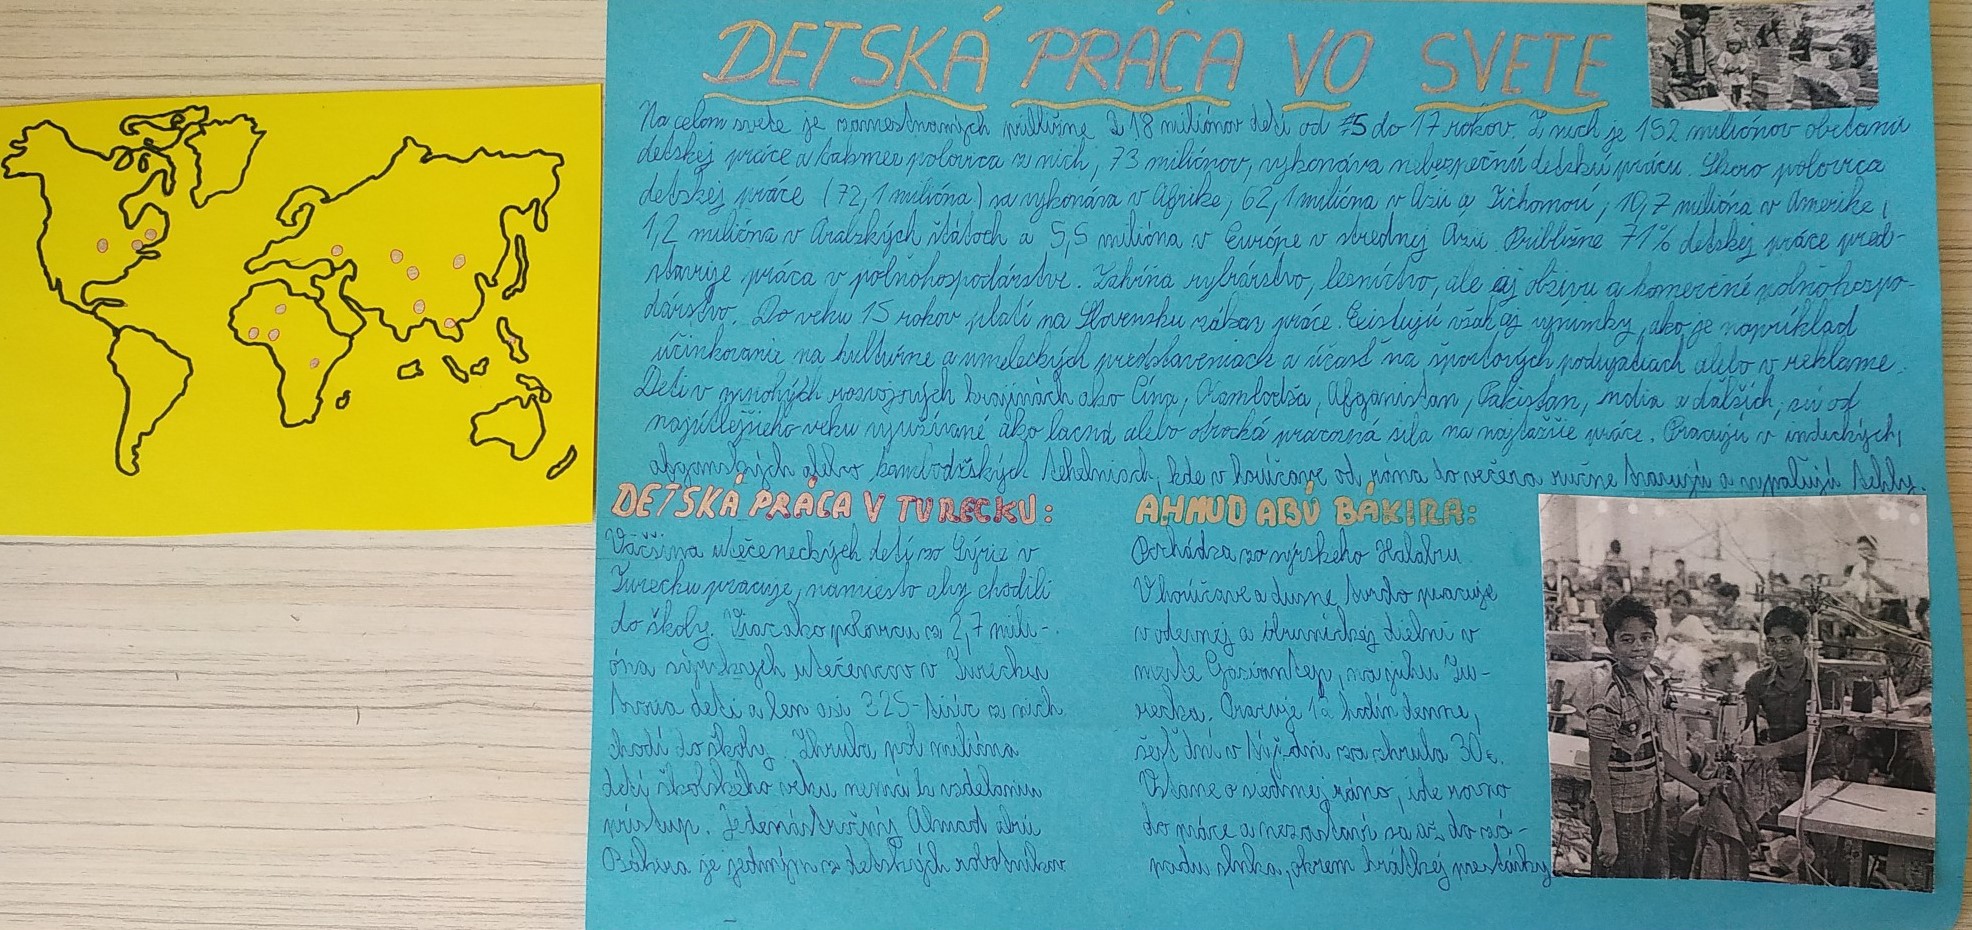 DETSKÁ PRÁCA VO SVETE
Na celom svete je zamestnaných približne 218 miliónov detí od 5 do 17 rokov. Z nich je 152 miliónov obeťami
detskej práce a takmer polovica z nich, 73 miliónov, vykonáva nebezpečnú detskú prácu. Skoro polovica
detskej práce (72,1 milióna) sa vykonáva v Afrike, 62,1 milióna v Ázii a Tichomorí, 10,7 milióna v Amerike,
1,2 milióna v Arabských štátoch a 5,5 milióna v Európe v strednej Ázii. Približne 71% detskej práce pred-
stavuje práca v poľnohospodárstve. Zahŕňa rybárstvo, lesníctvo, ale aj obživu a komerčné poľnohospo-
dárstvo. Do veku 15 rokov platí na Slovensku zákaz práce. Existujú však aj výnimky, ako je napríklad
účinkovanie na kultúrne a umeleckých predstaveniach a účasť na športových podujatiach alebo v reklame.
Deti v mnohých rozvojových krajinách ako Čína, Kambodža, Afganistan, Pakistan, India a ďalších, sú od
najútlejšieho veku využívané ako lacná alebo otrocká pracovná sila na najťažšie práce. Pracujú v indických,
afganských alebo kambodžských tehelniach, kde v horúčave od rána do večera ručne tvarujú a vypaľujú tehly.
DETSKÁ PRÁCA V TURECKU:
Väčšina utečeneckých detí zo Sýrie v
Turecku pracuje, namiesto aby chodili
do školy. Viac ako polovicu z 2,7 mili-
óna sýrskych utečencov v Turecku
tvoria deti a len asi 325-tisíc z nich
chodí do školy. Zhruba pol milióna
detí školského veku nemá k vzdelaniu
prístup. Jedenásťročný Ahmad abú
Bákira je jedným z detských robotníkov
AHMUD ABÚ BÁKIRA:
Pochádza zo sýrskeho Halabu.
V horúčave a dusne tvrdo pracuje
v odevnej a dielni v
meste Gaziantep, na juhu Tu-
recka. Pracuje 12 hodín denne,
šesť dní v týždni za zhruba 30€.
Vstane o siedmej ráno, ide rovno
do práce a nezastaví sa až do zá-
padu slnka, okrem krátkej prestávky